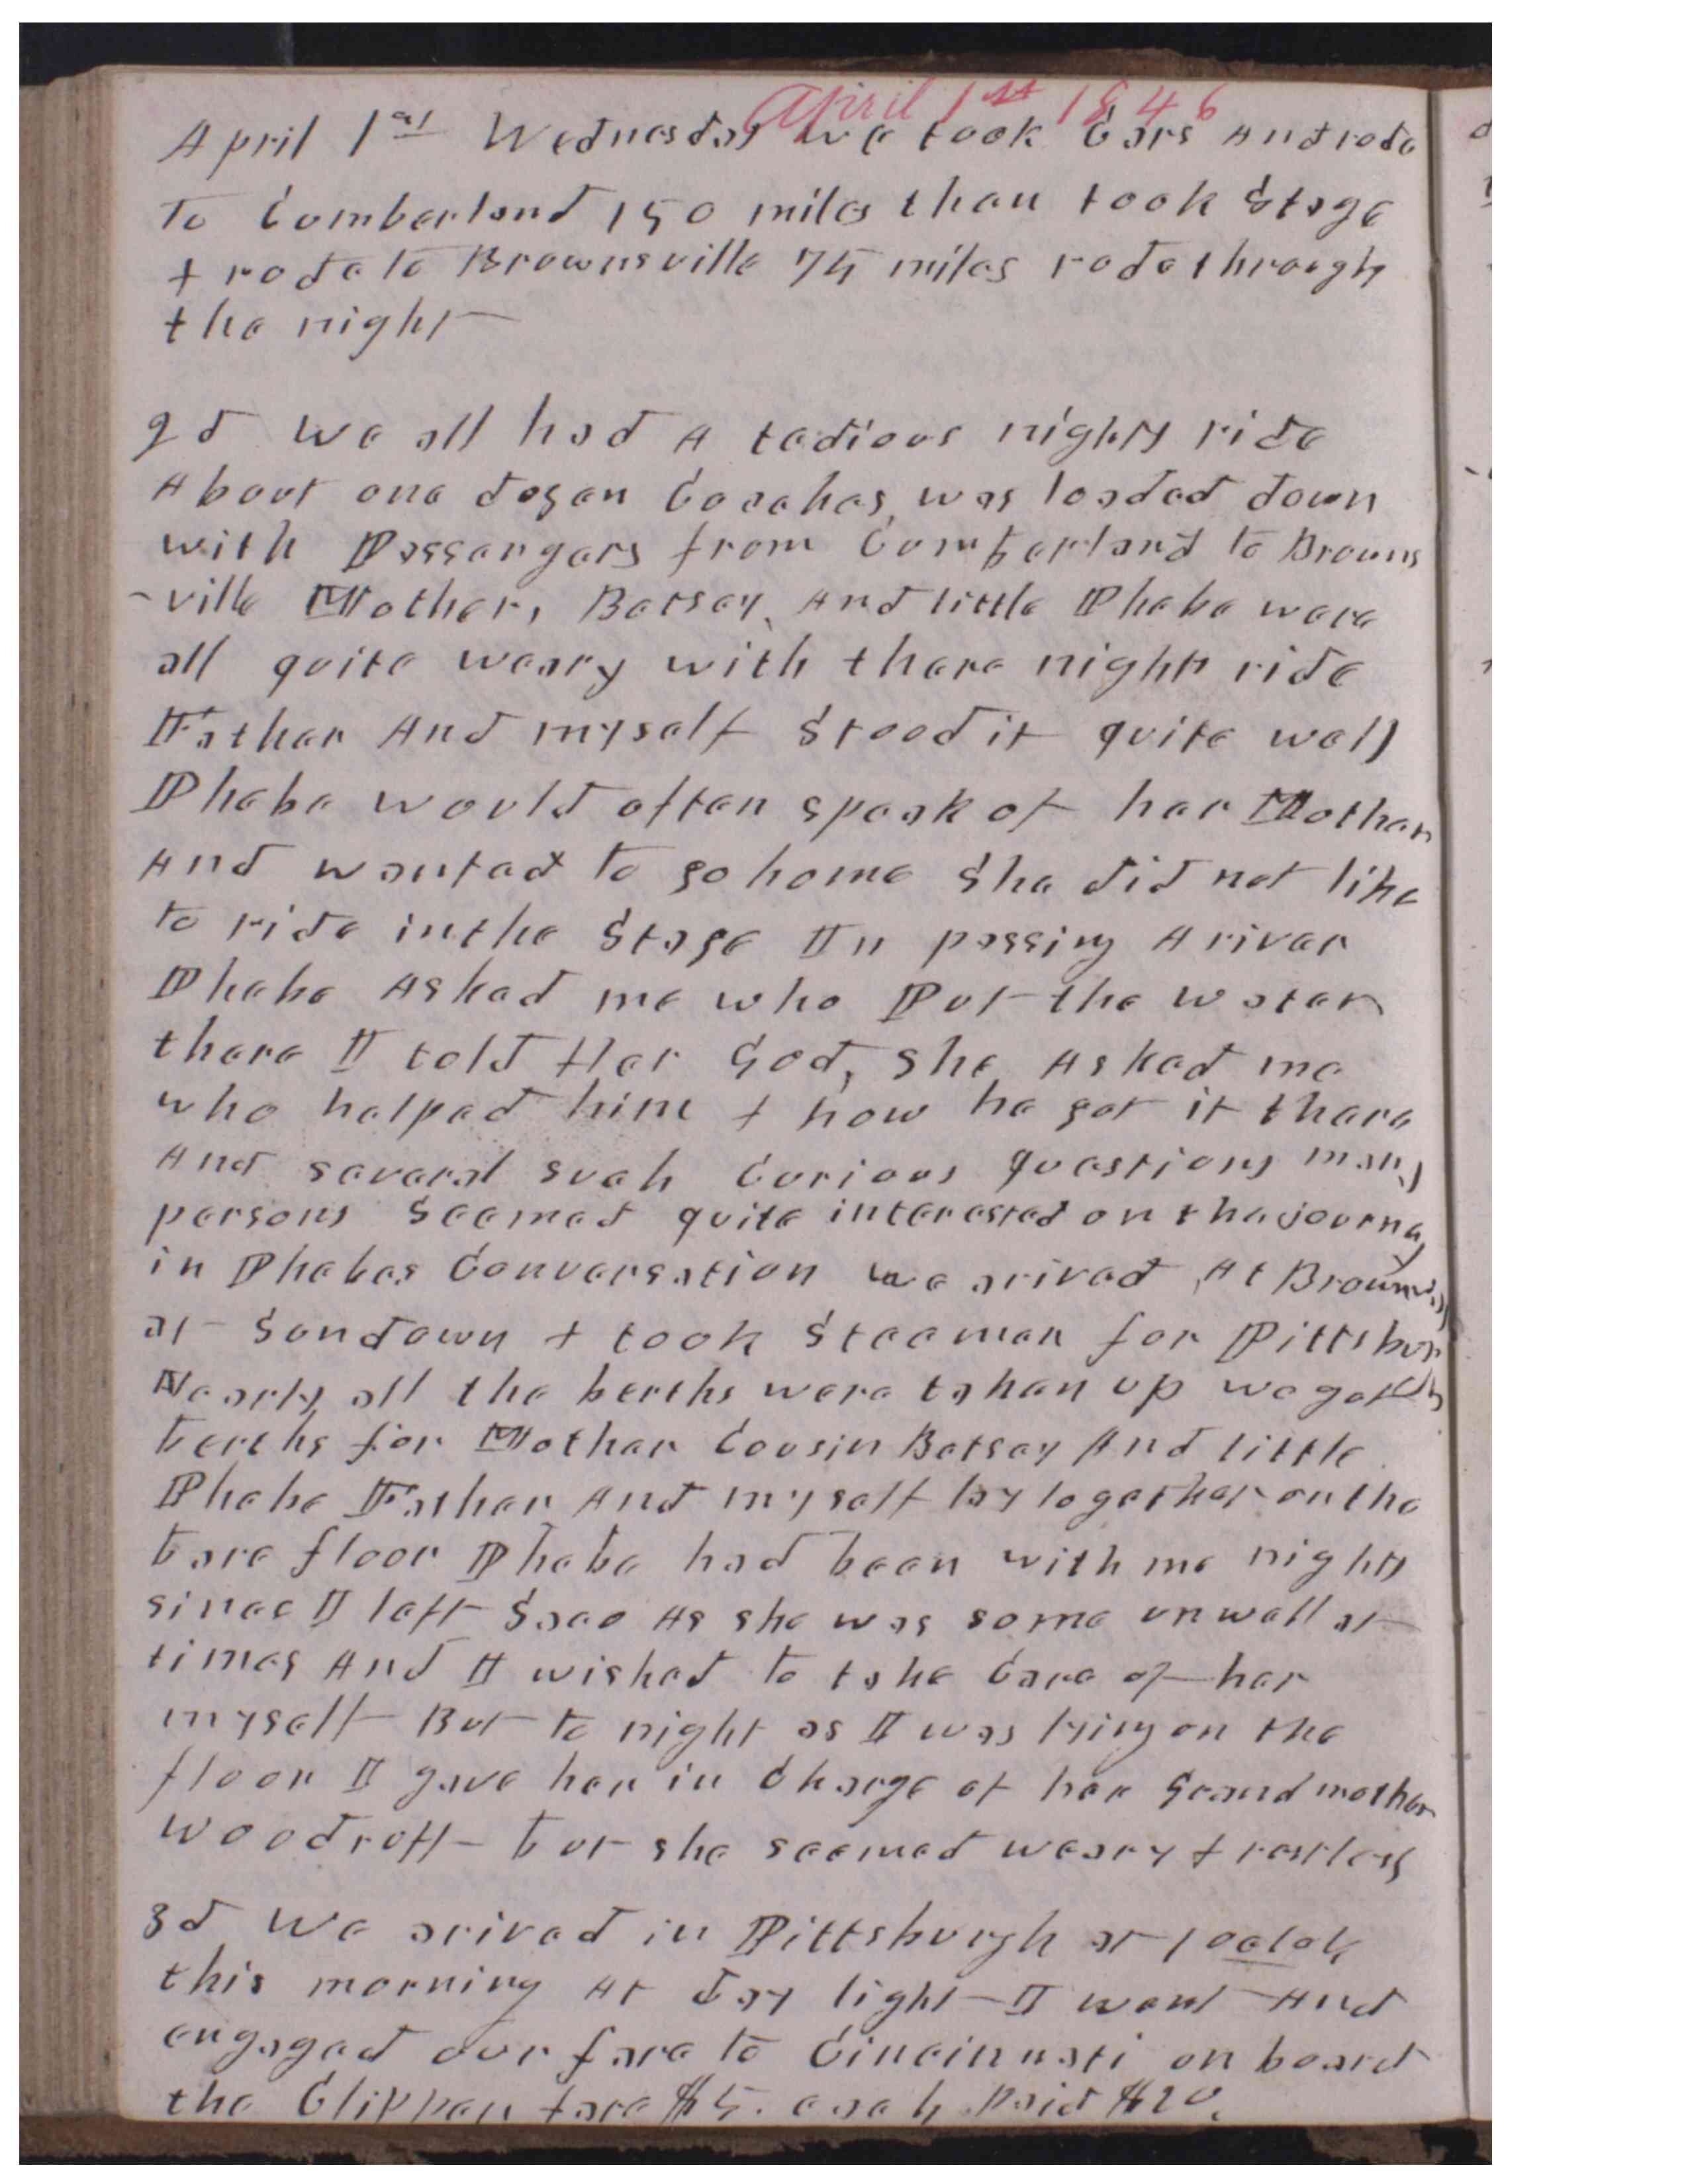 April 1st 1846
April 1st Wednesday we took Cars And rode
to Cumberland 150 miles then took Stage
+ rode to Brownsville 75 miles rode through
the night
2d We all had A tedious nights ride
About one dozen Coaches was loaded down
with Passengers from Cumberland to Browns
-ville Mother, Betsey, And little Phebe were
all quite weary with there nights ride
Father And myself Stood it quite well
Phebe would often speak of her Mother
And wanted to go home She did not like
to ride in the Stage In passing A river
Phebe Asked me who Put the water
there I told Her God, She Asked me
who helped him + how he got it there
And several such Curious questions many
persons Seemed quite interested on the journey
in Phebes Conversation we arived At Brownsvill
at Sundown + took Steamer for Pittsburgh
Nearly all the berths were taken up we got
berths for Mother Cousin Betsey And little
Phebe Father And myself lay together on the
bare floor Phebe had been with me nights
since I left Saco As she was some unwell at
times And I wished to take Care of her
myself But to night as I was lying on the
floor I gave her in Charge of her Grandmother
Woodruff but she seemed weary + restless
3d We arived in Pittsburgh at 1 oclok
this morning At day light I went And
engaged our fare to Cincinnati on board
the Clipper fare $5. each Paid $20.